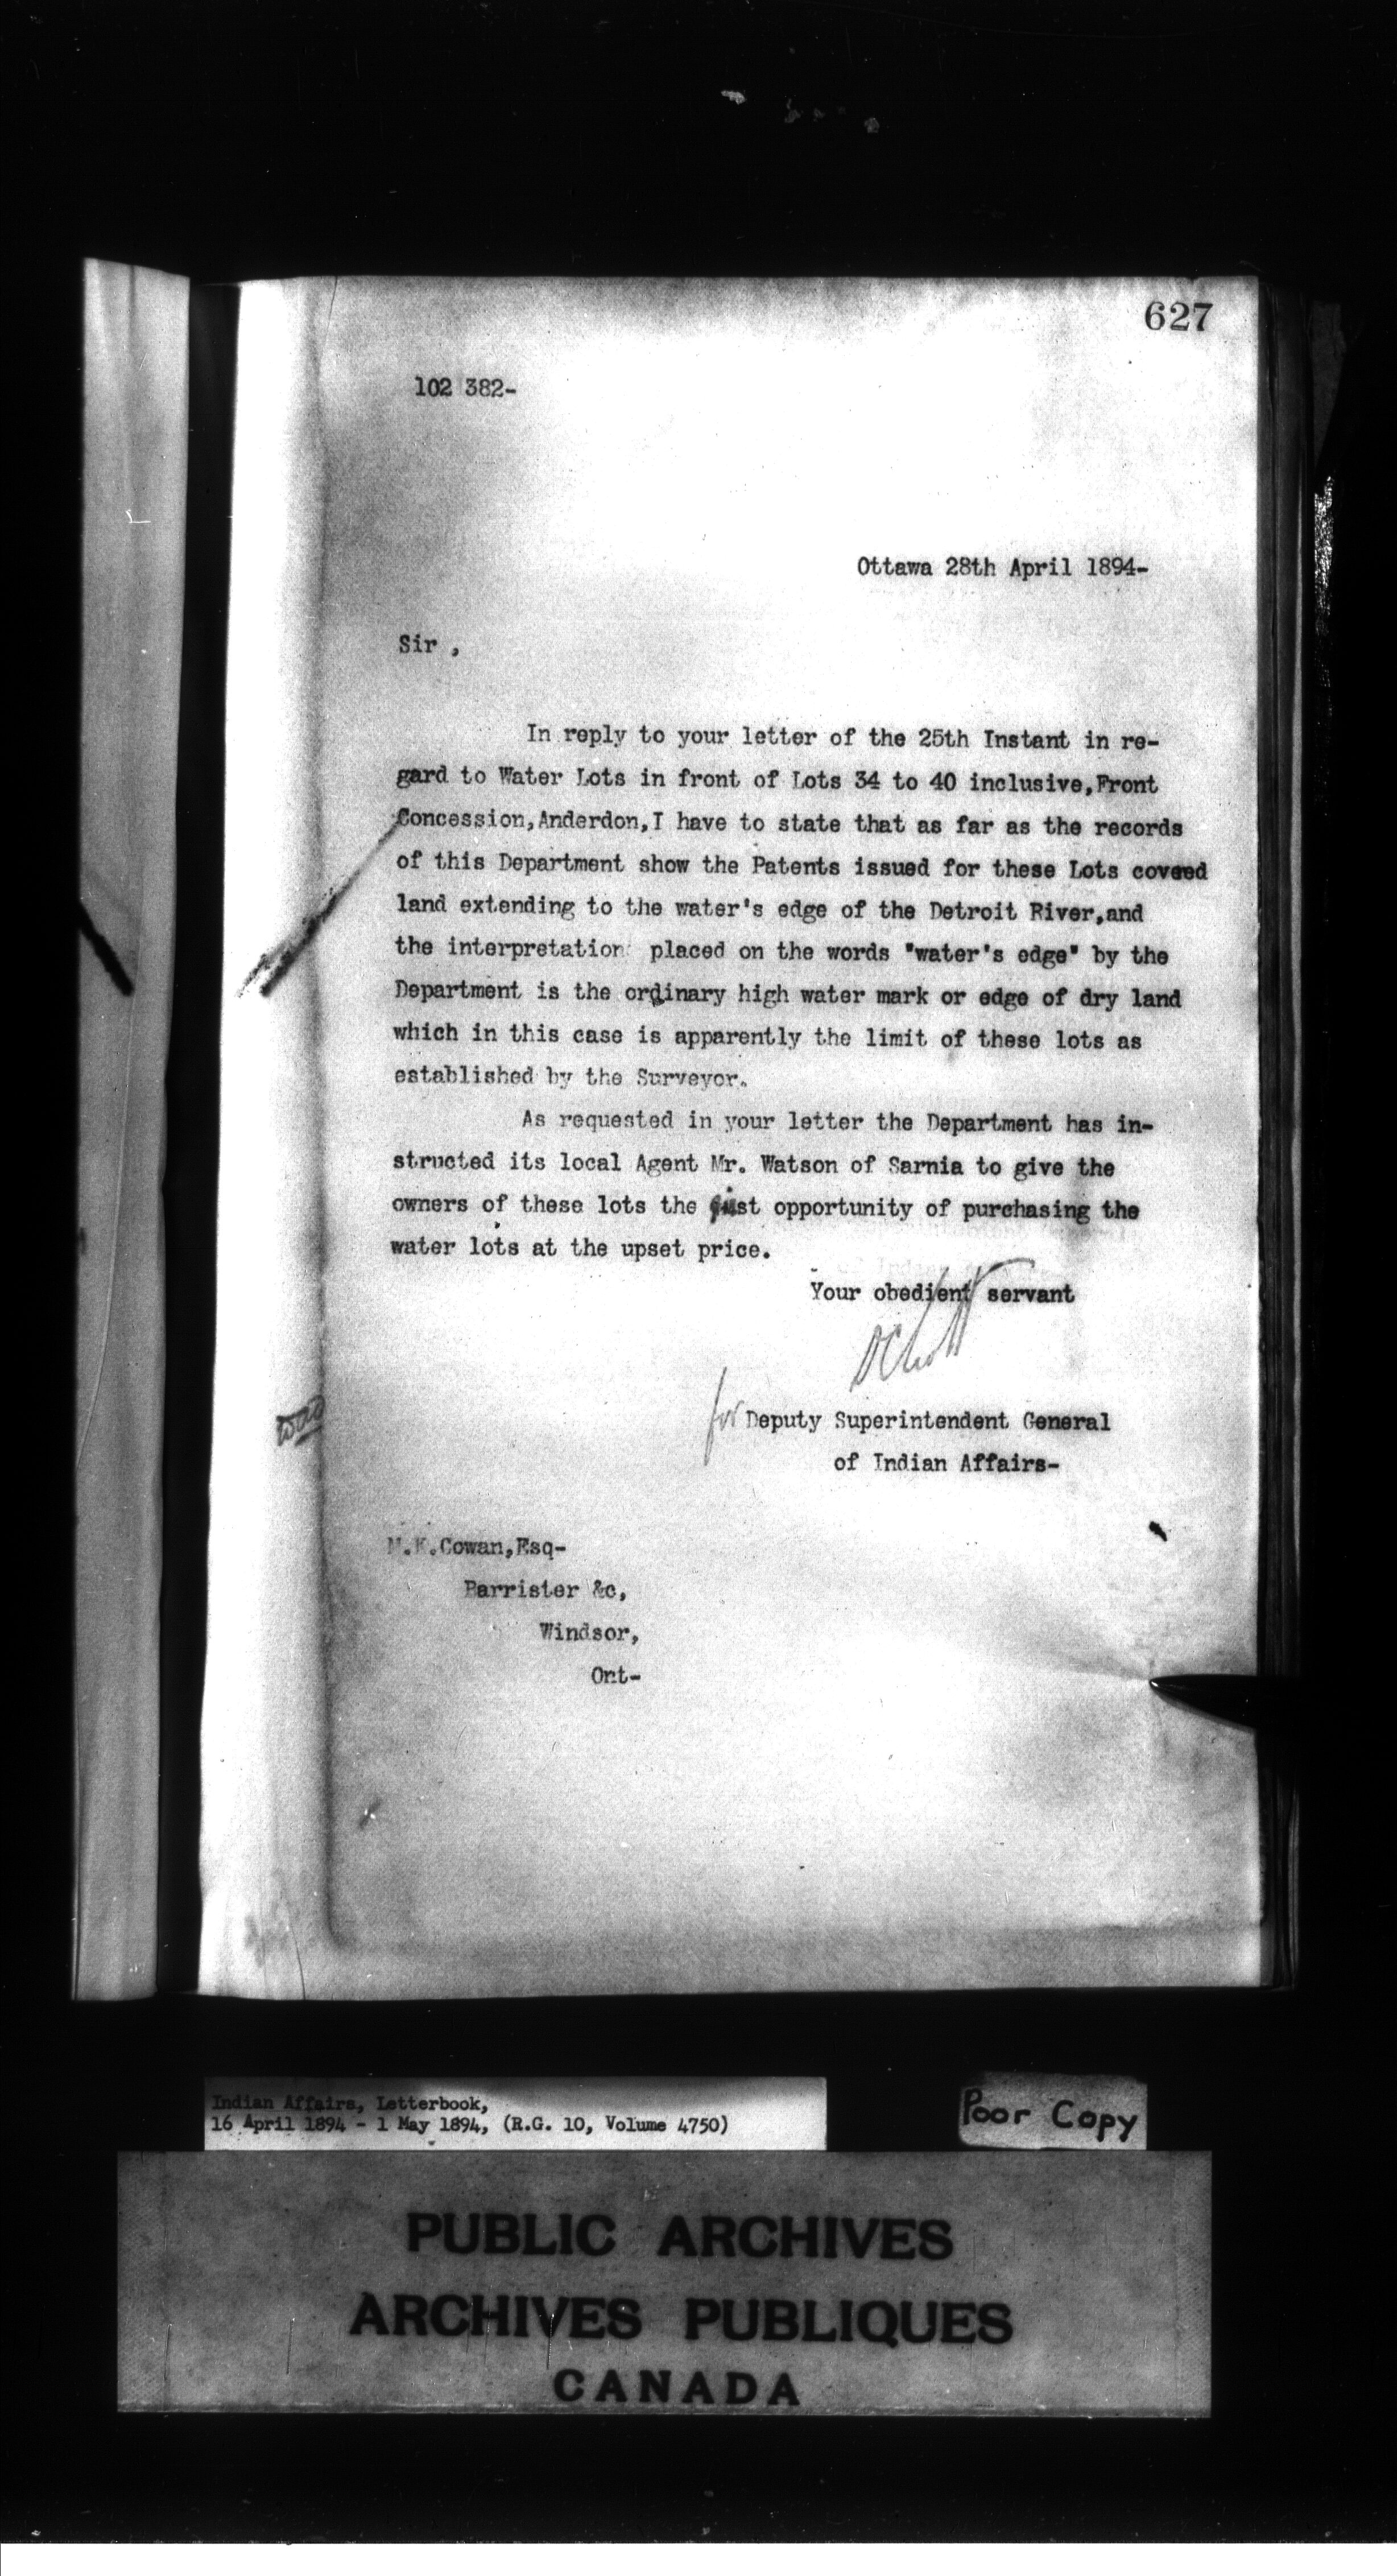 627
102 382-
Ottawa 28th April 1894-
Sir ,
In reply to your letter of the 25th Instant in re-
gard to Water Lots in front of Lots 34 to 40 inclusive,Front
Concession,Anderdon,I have to state that as far as the records
of this Department show the Patents issued for these Lots covered
land extending to the water's edge of the Detroit River,and
the interpretation placed on the words "water's edge" by the
Department is the ordinary high water mark or edge of dry land
which in this case is apparently the limit of these lots as
established by the Surveyor.
As requested in your letter the Department has in-
structed its local Agent Mr. Watson of Sarnia to give the
owners of these lots the first opportunity of purchasing the
water lots at the upset price.
Your obedient servant
for Deputy Superintendent General
of Indian Affairs-
M.K.Cowan,Esq-
Barrister &c,
Windsor,
Ont-
Indian Affairs, Letterbook,
16 April 1894 - 1 May 1894, (R.G. 10, Volume 4750)
Poor Copy
PUBLIC ARCHIVES
ARCHIVES PUBLIQUES
CANADA